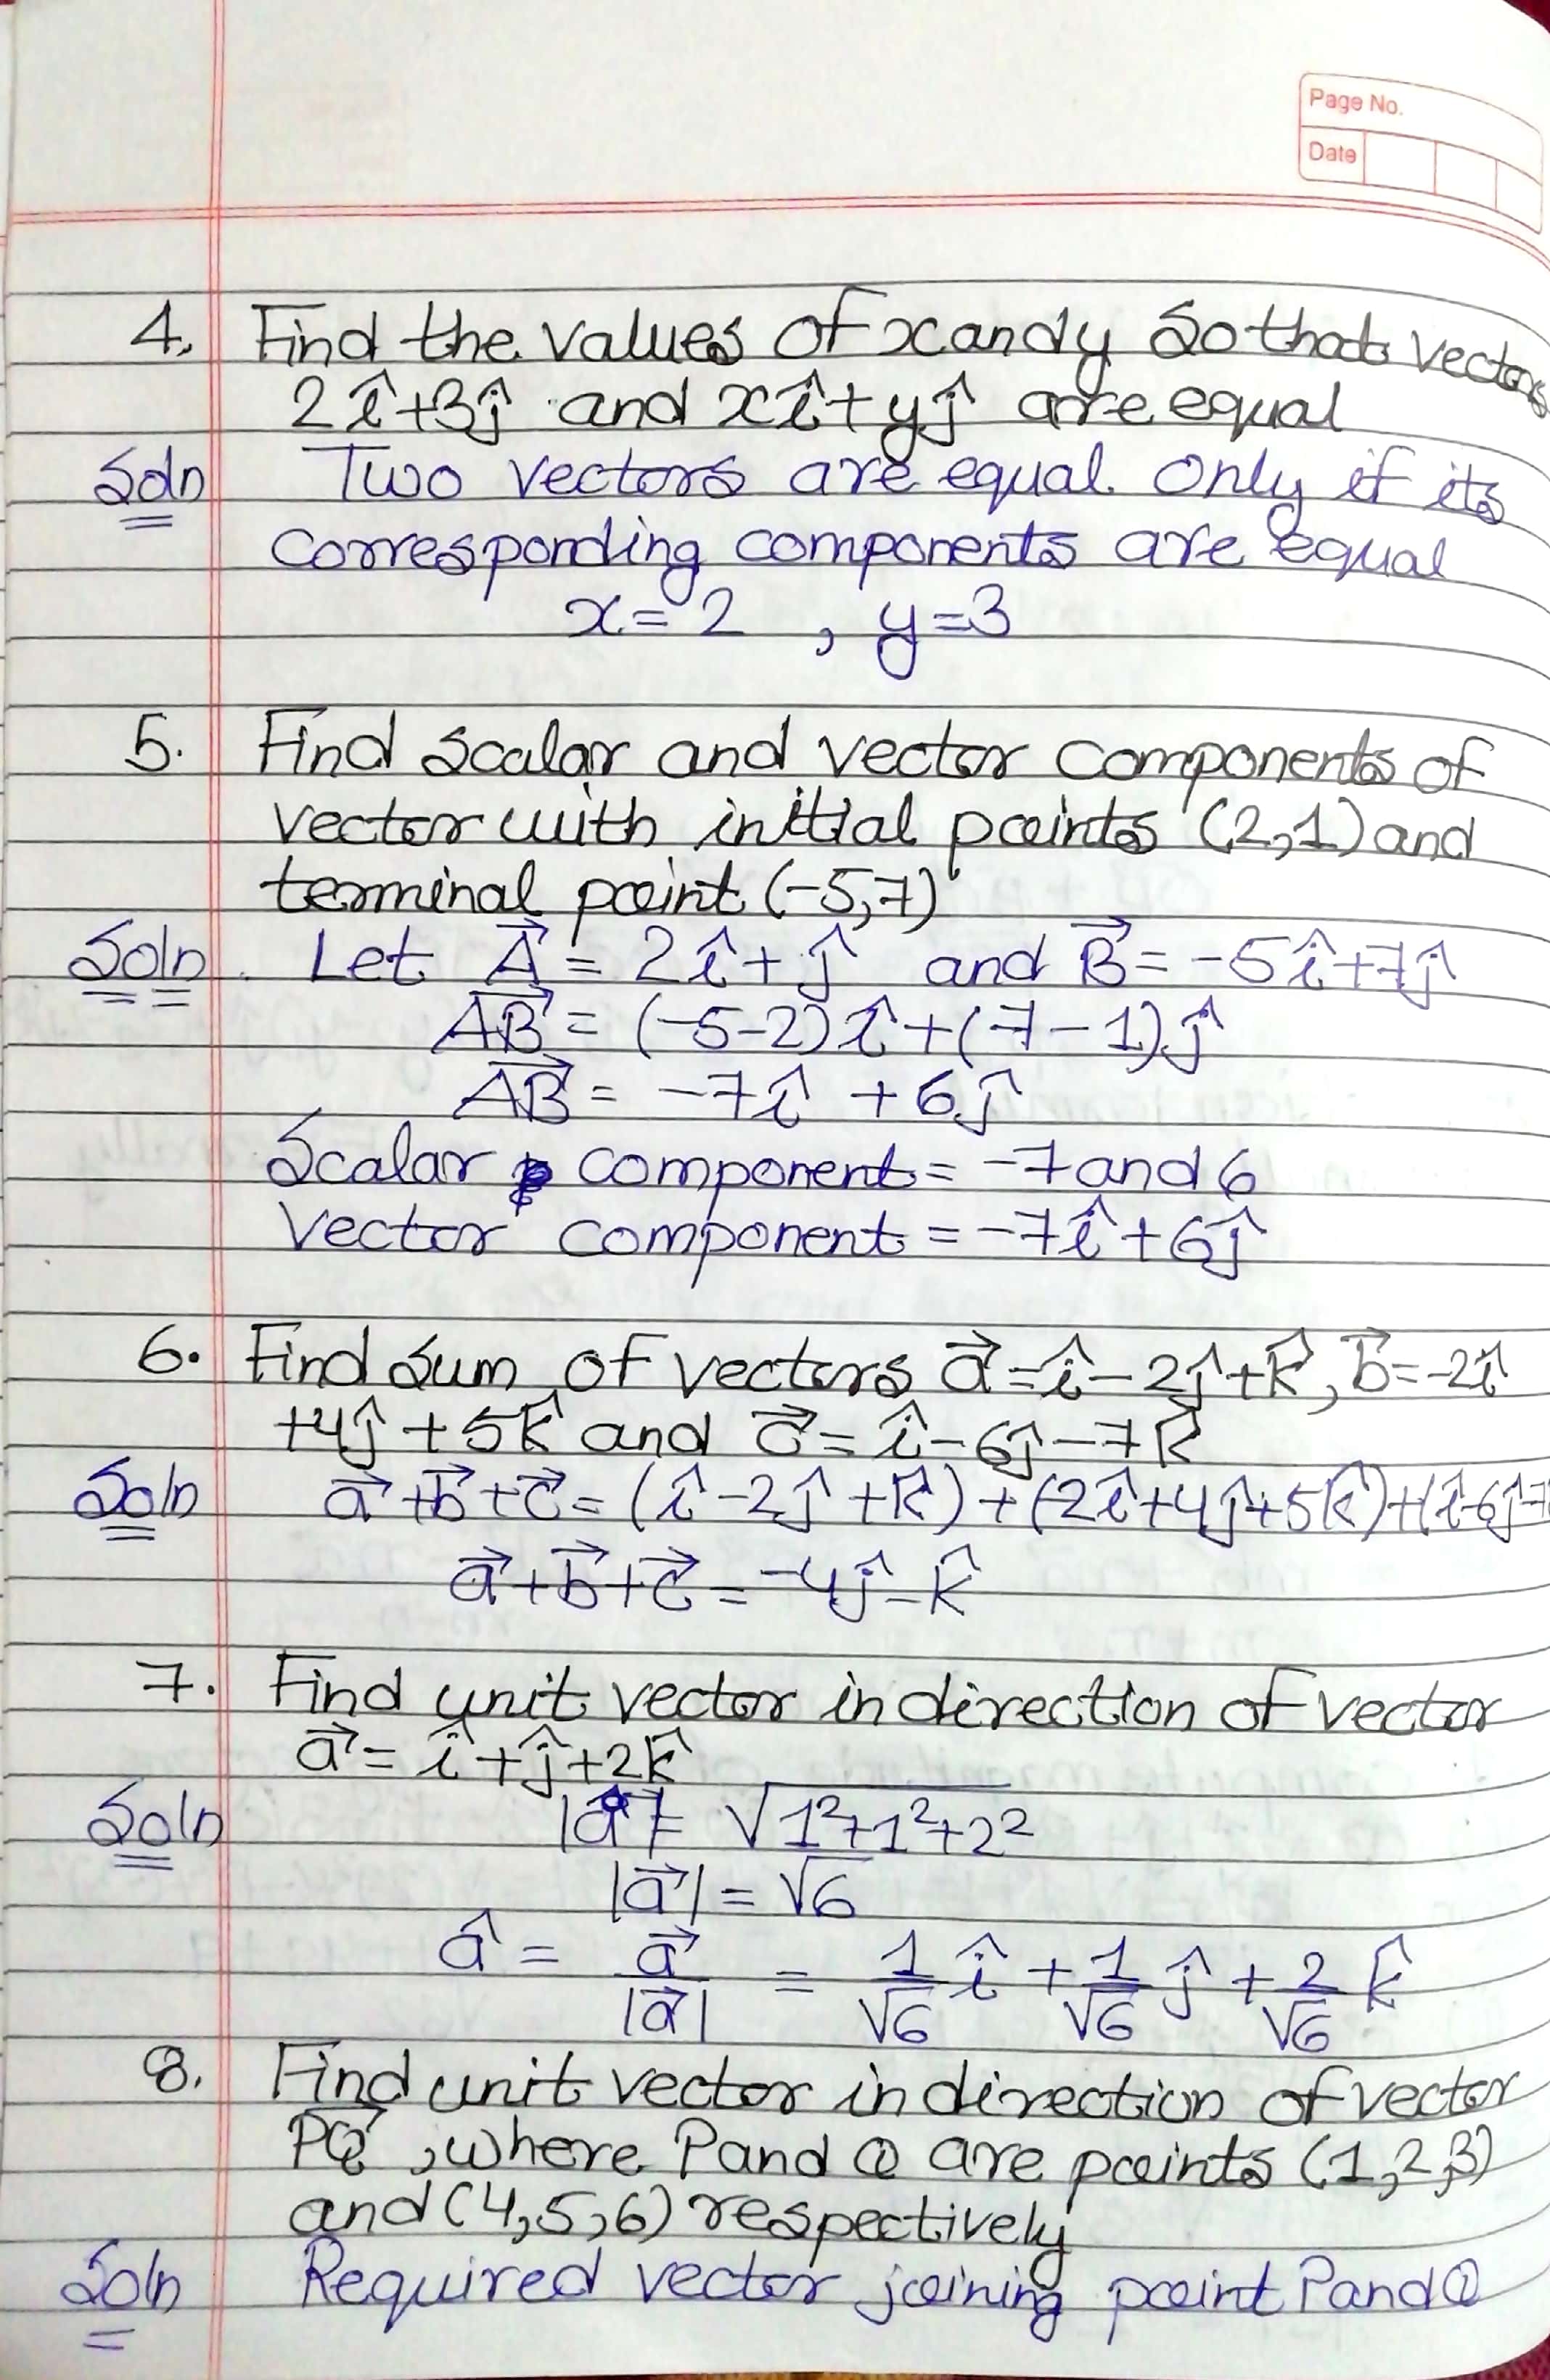 Page No.
Date
4. Find the values of x and y so that vectors
2î+3ĵ and xî+yĵ are equal
Soln Two vectors are equal only if its
corresponding components are equal
x=2 , y=3
5. Find scalar and vector components of
vector with initial points (2,1) and
terminal point (-5,7)
Soln. Let A⃗ = 2î+ĵ and B⃗ = -5î+7ĵ
AB⃗ = (-5-2)î+(7-1)ĵ
AB⃗ = -7î +6ĵ
Scalar component = -7 and 6
Vector component = -7î+6ĵ
6. Find sum of vectors a⃗=î-2ĵ+k̂, b⃗=-2î
+4ĵ+5k̂ and c⃗=î-6ĵ-7k̂
Soln a⃗+b⃗+c⃗=(î-2ĵ+k̂)+(-2î+4ĵ+5k̂)+(î-6ĵ-7
a⃗+b⃗+c⃗=-4ĵ-k̂
7. Find unit vector in direction of vector
a⃗=î+ĵ+2k̂
Soln |a⃗|= √1²+1²+2²
|a⃗|=√6
â = a⃗/|a⃗| = 1/√6 î + 1/√6 ĵ + 2/√6 k̂
8. Find unit vector in direction of vector
PQ⃗, where P and Q are points (1,2,3)
and (4,5,6) respectively
Soln Required vector joining point P and Q